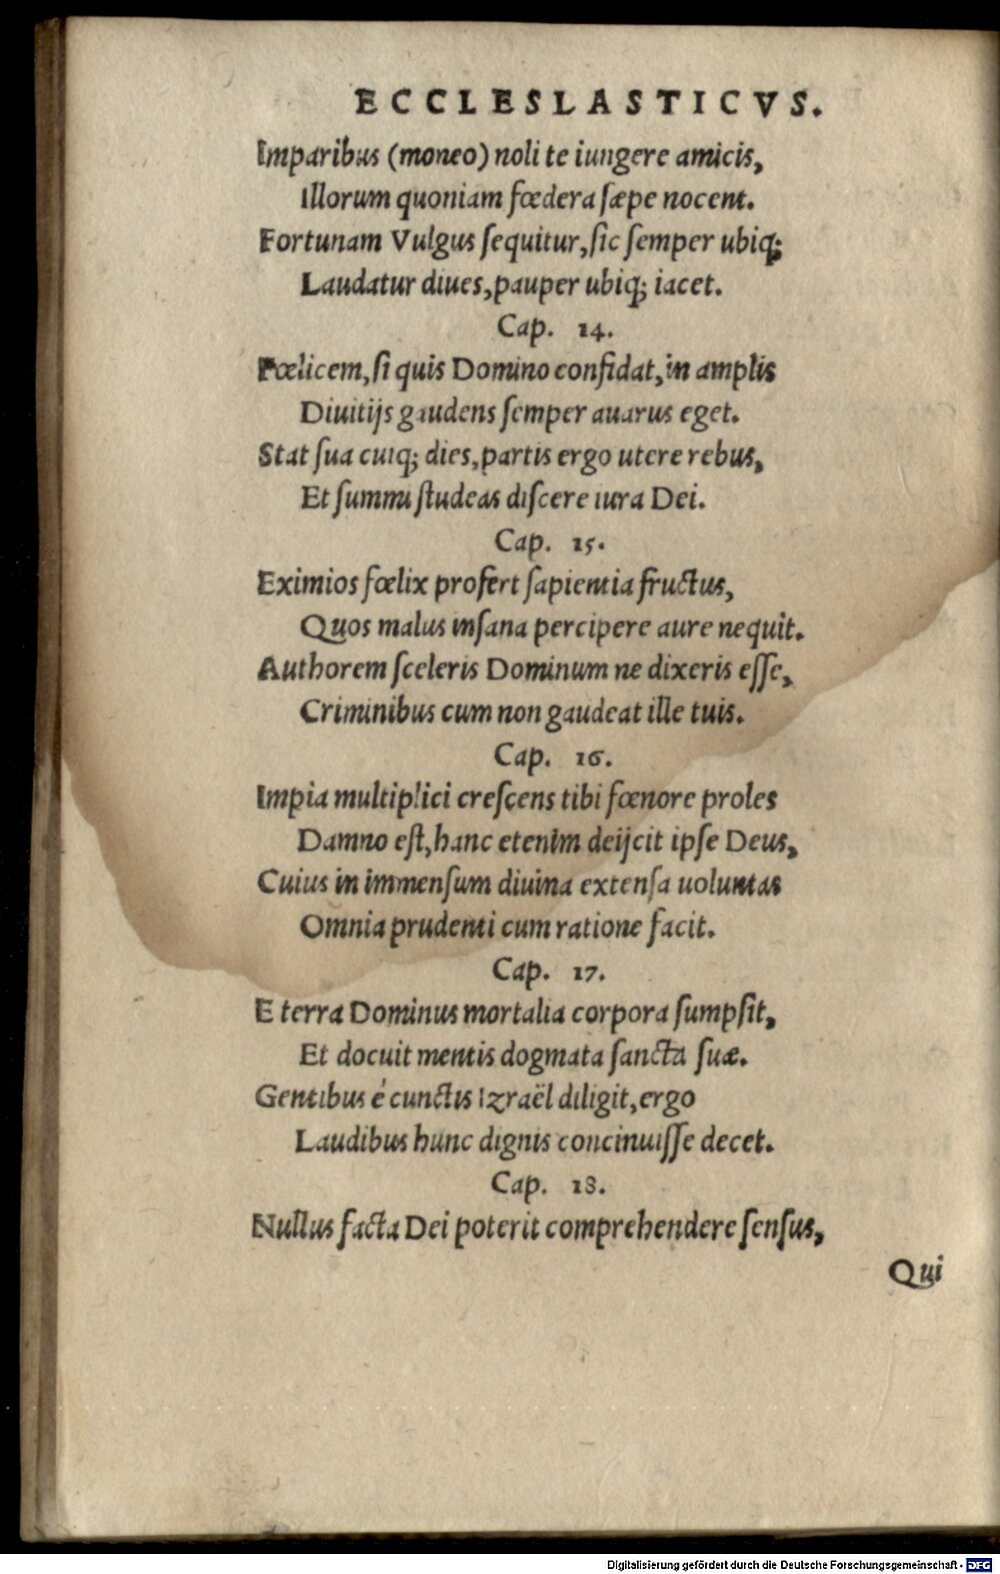 ECCLESLASTICVS.
Imparibus (moneo) noli te iungere amicis,
Illorum quoniam fœdera ſæpe nocent.
Fortunam Vulgus ſequitur, ſic ſemper ubiq;
Laudatur diues, pauper ubiq; iacet.
Cap. 14.
Fœlicem, ſi quis Domino confidat, in amplis
Diuitijs gaudens ſemper auarus eget.
Stat ſua cuiq; dies, partis ergo utere rebus,
Et ſummi ſtudeas diſcere iura Dei.
Cap. 15.
Eximios fœlix profert ſapientia fructus,
Quos malus inſana percipere aure nequit.
Authorem ſceleris Dominum ne dixeris eſſe,
Criminibus cum non gaudeat ille tuis.
Cap. 16.
Impia multiplici creſcens tibi fœnore proles
Damno eſt, hanc etenim deijcit ipſe Deus,
Cuius in immenſum diuina extenſa uoluntas
Omnia prudenti cum ratione facit.
Cap. 17.
E terra Dominus mortalia corpora ſumpſit,
Et docuit mentis dogmata ſancta ſuæ.
Gentibus é cunctis Izraël diligit, ergo
Laudibus hunc dignis concinuiſſe decet.
Cap. 18.
Nullus facta Dei poterit comprehendere ſenſus,
Qui
Digitalisierung gefördert durch die Deutsche Forschungsgemeinschaft - DFG